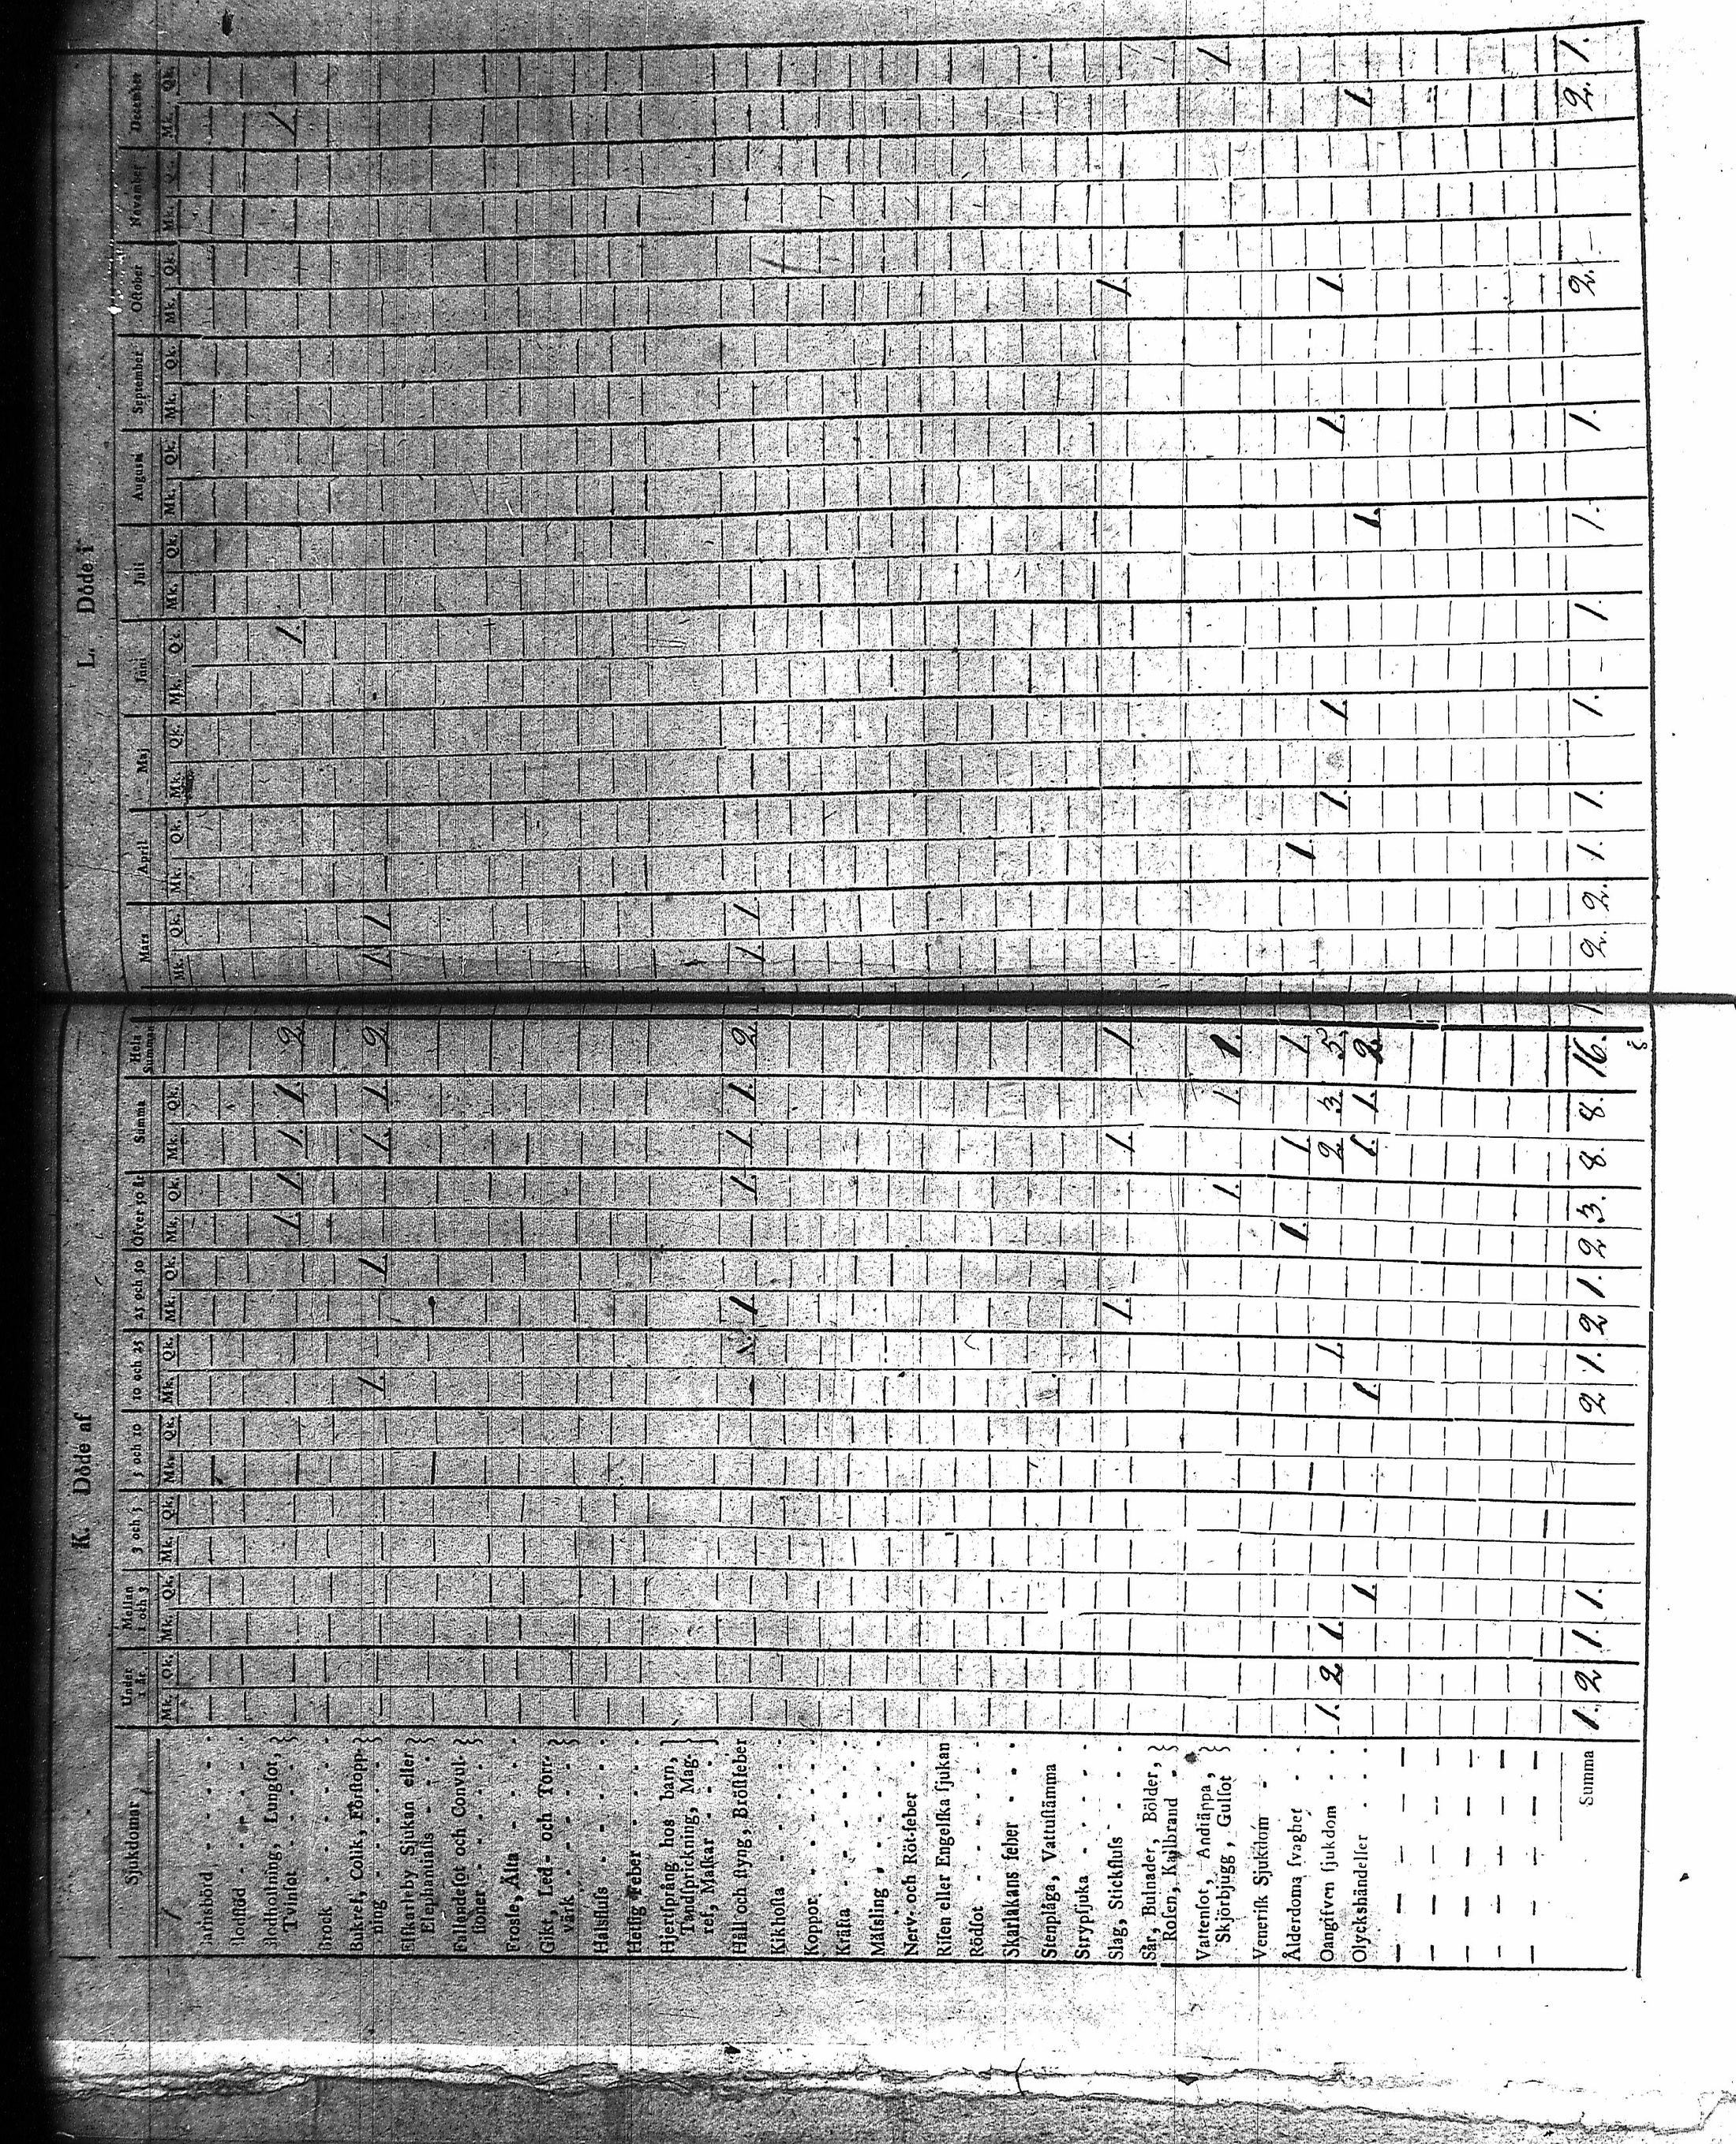 K. Döde af
L. Döde i
Sjukdomar
Under 1 år. Mellan 1 och 3 3 och 5 5 och 10 10 och 25 25 och 50 Öfver 50 år Summa Hela Summan Mars April Maj Juni Juli Augusti September October November December
Mk. Qk. Mk. Qk. Mk. Qk. Mk. Qk. Mk. Qk. Mk. Qk. Mk. Qk. Mk. Qk. Mk. Qk. Mk. Qk. Mk. Qk. Mk. Qk. Mk. Qk. Mk. Qk. Mk. Qk. Mk. Qk. Mk. Qk. Mk. Qk.
Barnsbörd
Blodstöd
Blodhostning, Lungsot,
Tvinsot 1. 1. 1. 1. 2 1. 1
Brock
Bukref, Colik, Förstopp-
ning 1. 1. 1. 1. 2 1. 1
Elfkarleby Sjukan eller
Elephantiasis
Fallandesot och Convul-
sioner
Frossa, Älta
Gikt, Led- och Torr-
värk
Halsfluss
Hetsig Feber
Hjertsprång hos barn,
Tandsprickning, Mag-
ref, Maskar
Håll och styng, Bröstfeber 1 1. 1. 1. 2 1. 1
Kikhosta
Koppor
Kräfta
Mässling
Nerv- och Röt-feber
Risen eller Engelska sjukan
Rödsot
Skarlakans feber
Stenplåga, Vattustämma
Strypsjuka
Slag, Stickfluss 1. 1. 1 1.
Sår, Bulnader, Bölder,
Rosen, Kallbrand
Vattensot, Andtäppa,
Skjörbjugg, Gulsot 1. 1. 1. 1
Venerisk Sjukdom
Ålderdoms svaghet 1. 1. 1. 1.
Oangifven sjukdom 1. 2 1. 1. 2 3. 5. 1. 1. 1. 1.
Olyckshändelser 1. 1. 1. 1. 2 1. 1.
Summa 1. 2 1. 1. 2 1. 2 1. 2 3. 8. 8. 16. 2. 2. 1. 1. 1. 1. 1. 1. 2. 2. 1.